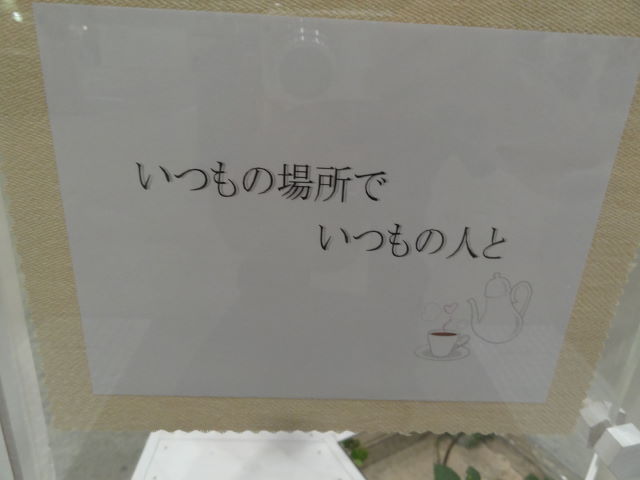 いつもの場所で
いつもの人と